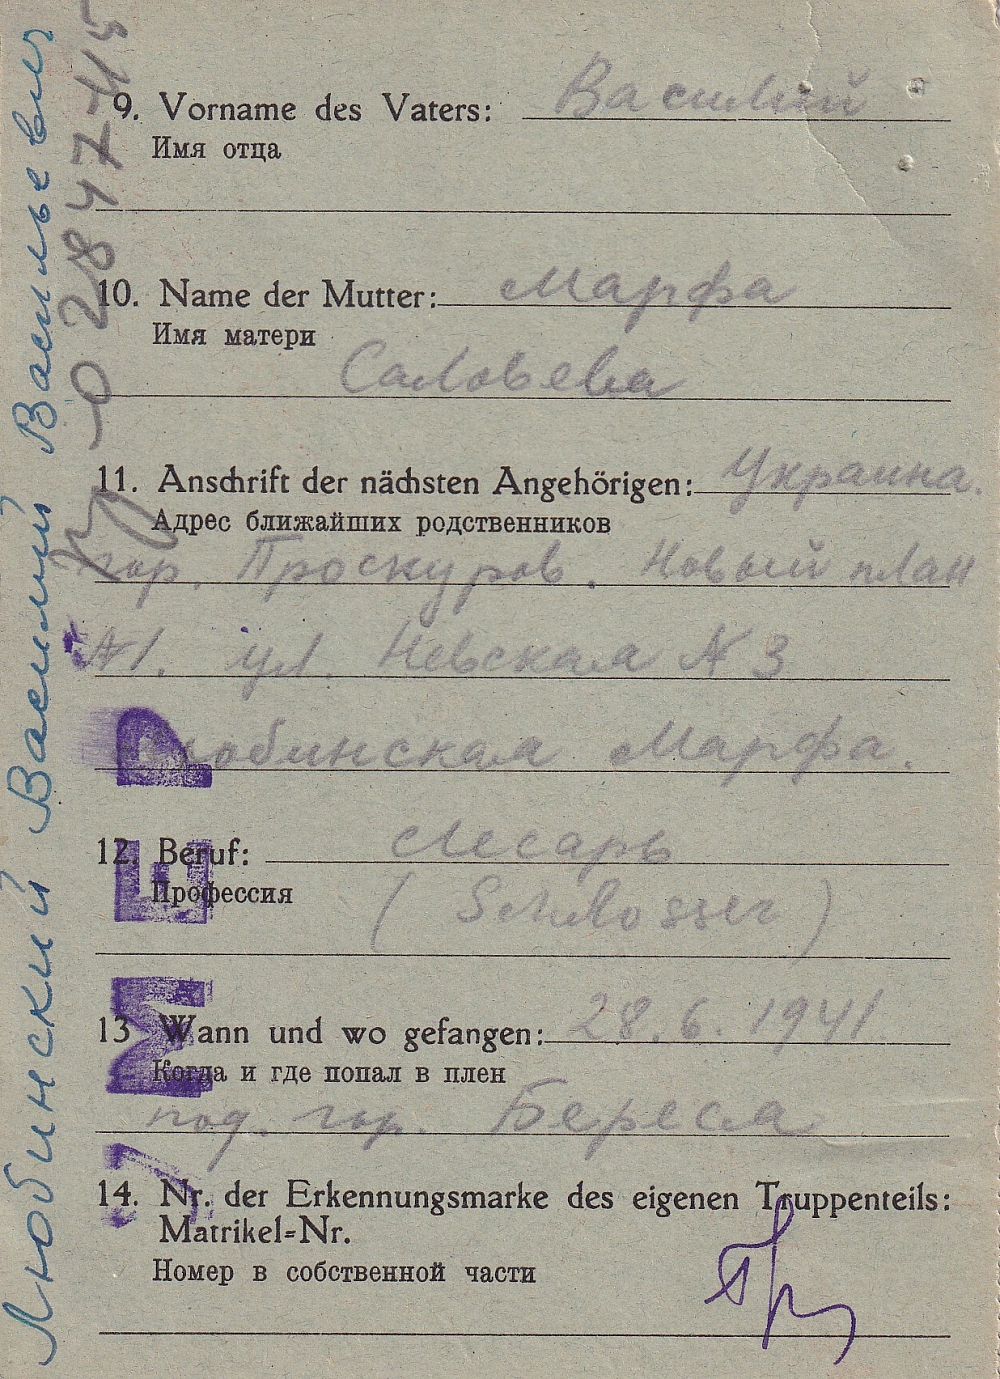 9. Vorname des Vaters: Василий
Имя отца
10. Name der Mutter: Марфа
Имя матери
Саловьева
11. Anschrift der nächsten Angehörigen: Украина.
Адрес ближайших родственников
гор. Проскуров. Новый план
№1. ул. Невская № 3
Любинская Марфа.
12. Beruf: Слесарь
Профессия
(Schlosser)
13 Wann und wo gefangen: 28.6.1941
Когда и где попал в плен
под. гор. Береса
14. Nr. der Erkennungsmarke des eigenen Truppenteils:
Matrikel=Nr.
Номер в собственной части
Любинский Василий Васильевич
УМЕР